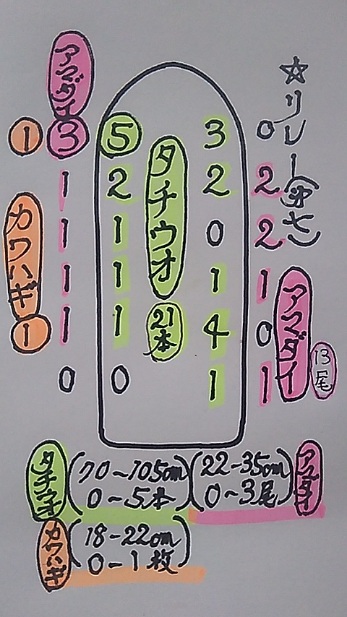 ☆リレー
アマダイ
カワハギ
タチウオ
21本
アマダイ
13尾
1 3 5 3 0
1 2 2 2
1 1 0 2
1 1 1 1
1 1 1 4 0
0 0 1 1
タチウオ (70～105cm
0～5本)
(22-35cm
0～3尾) アマダイ
カワハギ (18-22cm
0-1枚)